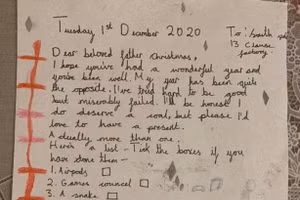 Tuesday 1st December 2020
To: South
13 Clause
factory.
Dear beloved father Christmas,
I hope you've had a wonderful year and
you've been well. My year has been quite
the opposite. I've tried hard to be good
but miserably failed. I'll be honest I
do deserve a coal, but please I'd
love to have a present.
Actually more than one.
Here's a list - Tick the boxes if you
have done them -
1. Airpods
2. Games councel
3. A snake